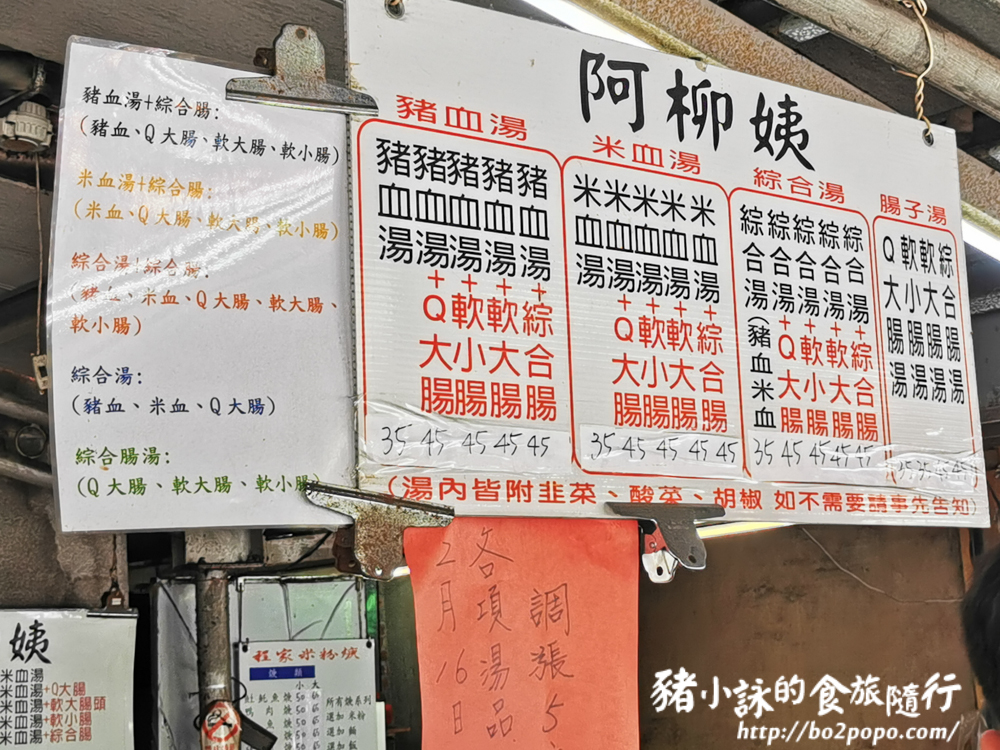 豬血湯+綜合腸:
(豬血、Q大腸、軟大腸、軟小腸)
米血湯+綜合腸:
(米血、Q大腸、軟大腸、軟小腸)
綜合湯+綜合腸:
(豬血、米血、Q大腸、軟大腸、
軟小腸)
綜合湯:
(豬血、米血、Q大腸)
綜合腸湯:
(Q大腸、軟大腸、軟小腸)
阿柳姨
豬血湯
豬血湯
豬血湯+Q大腸
豬血湯+軟小腸
豬血湯+軟大腸
豬血湯+綜合腸
35 45 45 45 45
米血湯
米血湯
米血湯+Q大腸
米血湯+軟小腸
米血湯+軟大腸
米血湯+綜合腸
35 45 45 45 45
綜合湯
綜合湯(豬血米血
綜合湯+Q大腸
綜合湯+軟小腸
綜合湯+軟大腸
綜合湯+綜合腸
35 45 45 45 45
腸子湯
Q大腸湯
軟小腸湯
軟大腸湯
綜合腸湯
(湯內皆附韭菜、酸菜、胡椒 如不需要請事先告知)
2月16日
各項湯品
調漲5
姨
米血湯
米血湯+Q大腸
米血湯+軟大腸頭
米血湯+軟小腸
米血湯+綜合腸
程家米粉焿
焿類
小 大
所有焿系列
選加 米粉
選加 麵
選加 飯
豬小詠的食旅隨行
http://bo2popo.com/